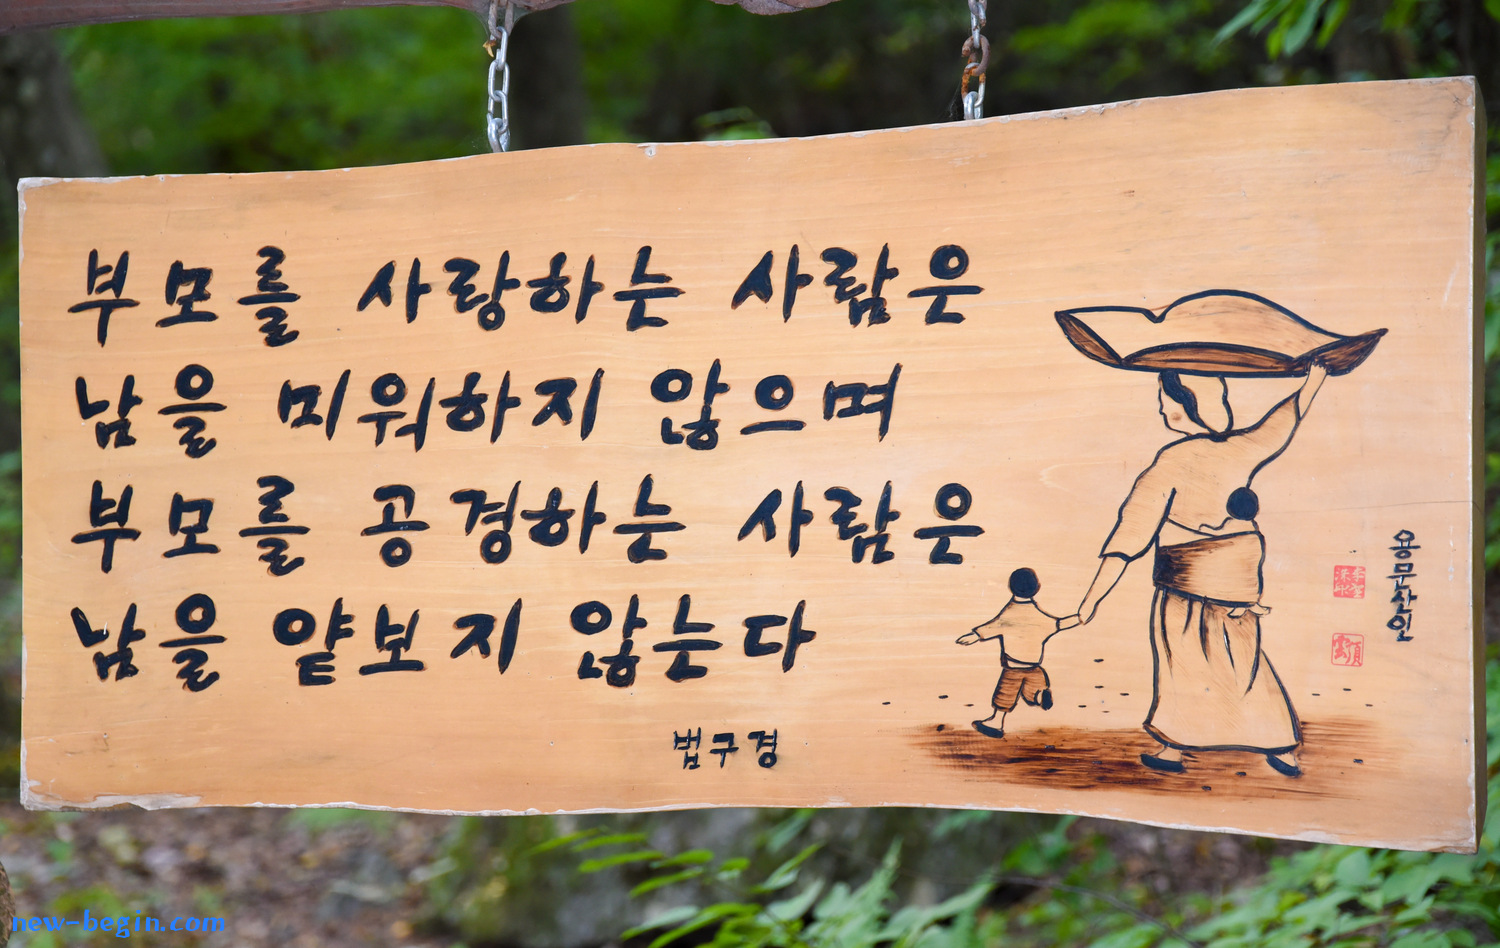 부모를 사랑하는 사람은
남을 미워하지 않으며
부모를 공경하는 사람은
남을 얕보지 않는다
법구경
용문산인
new-begin.com